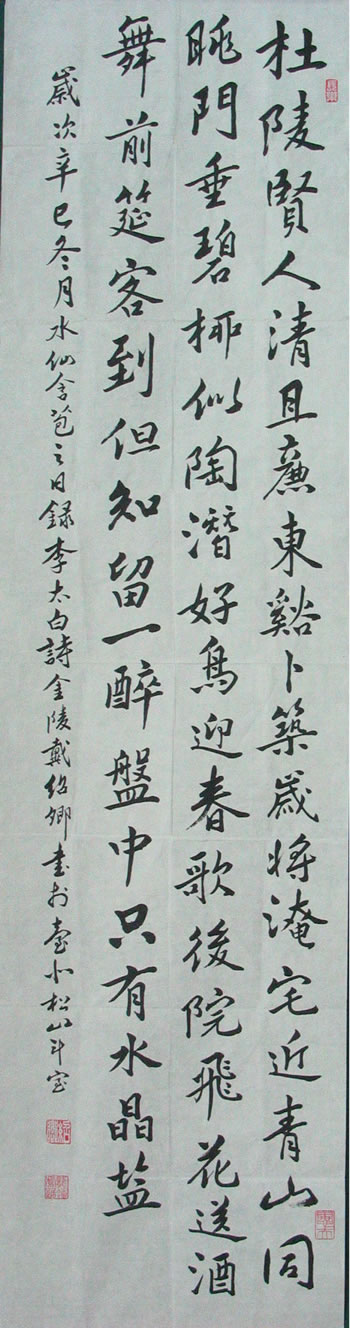 杜陵賢人清且廉東谿卜築歲將淹宅近青山同
眺門垂碧柳似陶潛好鳥迎春歌後院飛花送酒
舞前筵客到但知留一醉盤中只有水晶盐
歲次辛巳冬月水仙含苞之日錄李太白詩金陵戴紹卿書於臺北松山斗室